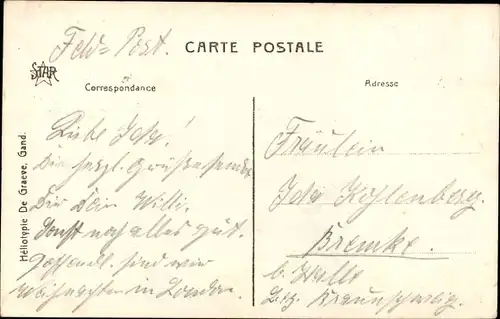 Feld-Post.
CARTE POSTALE
STAR
Correspondance
Adresse
Héliotypie De Graeve, Gand.
Liebe Ida!
Die herzl. Grüße sendet
Dir Dein Willi.
Sonst noch alles gut.
Hoffentl. sind wir
Weihnachten in London.
Fräulein
Ida Kohlenberg.
Bremke.
b. Halle
Bez. Braunschweig.